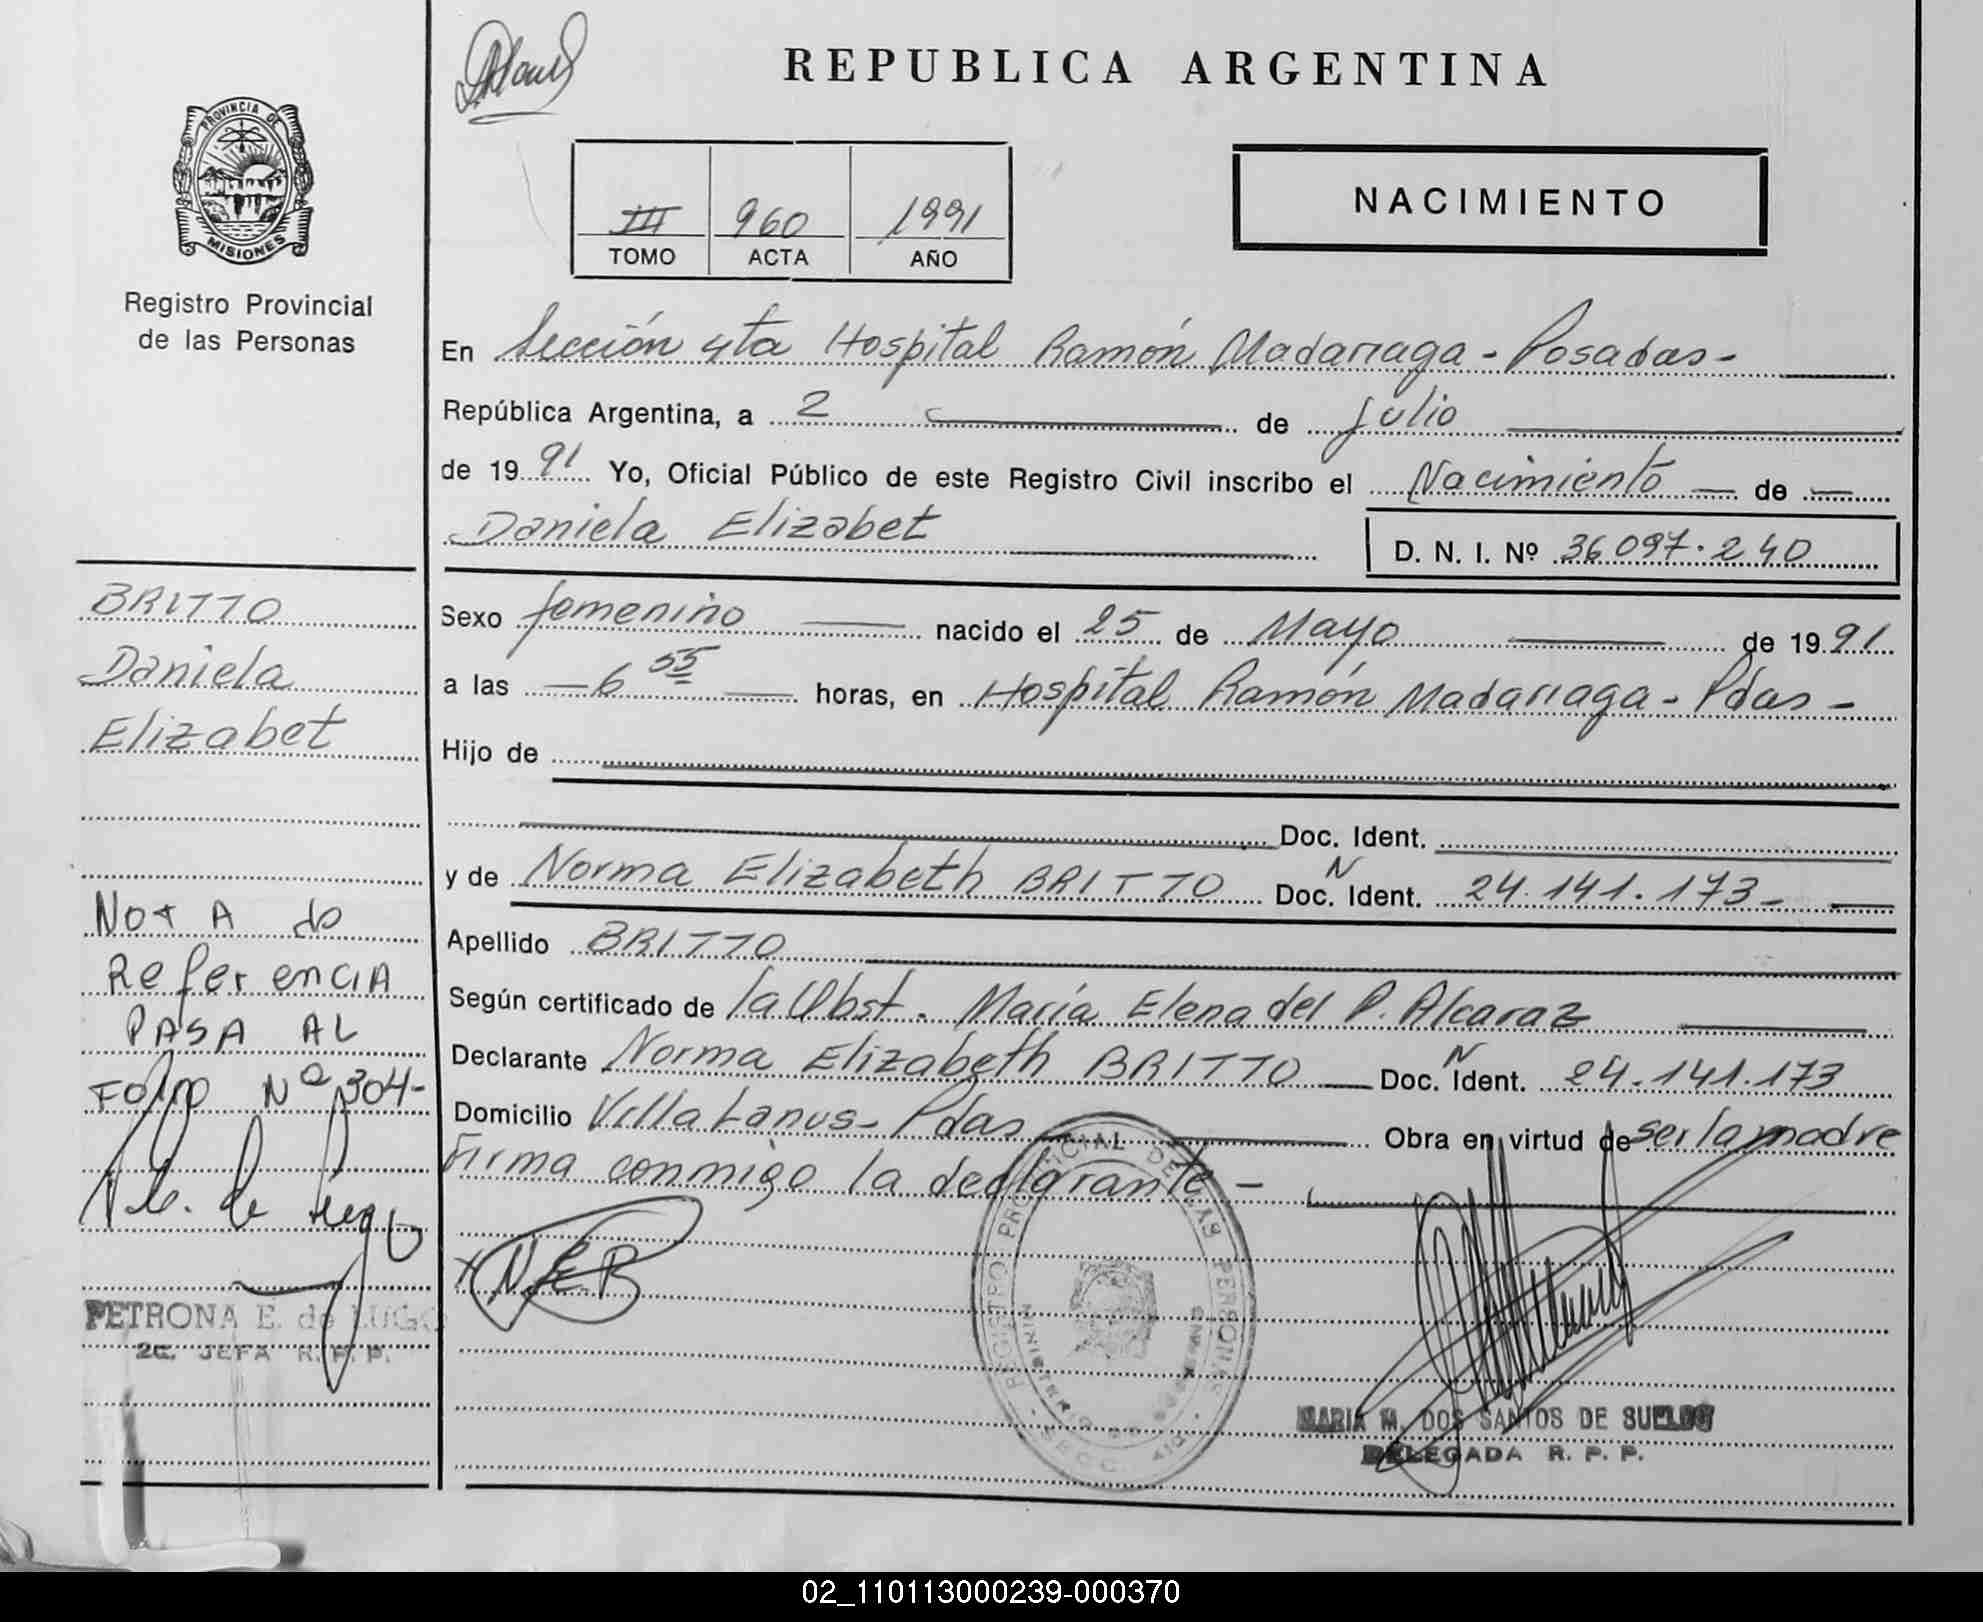 REPUBLICA ARGENTINA
PROVINCIA DE
MISIONES
Registro Provincial
de las Personas
III 960 1991
TOMO ACTA AÑO
NACIMIENTO
En Sección 4ta Hospital Ramón Madariaga - Posadas -
República Argentina, a 2 de Julio
de 1991 Yo, Oficial Público de este Registro Civil inscribo el Nacimiento de
Daniela Elizabet
D. N. I. Nº 36.097.240
Sexo femenino nacido el 25 de Mayo de 1991
a las - 6 55 horas, en Hospital Ramón Madariaga - Pdas -
Hijo de
Doc. Ident.
y de Norma Elizabeth BRITTO Doc. N Ident. 24.141.173 -
Apellido BRITTO
Según certificado de la Obst. María Elena del P. Alcaraz
Declarante Norma Elizabeth BRITTO Doc. N Ident. 24.141.173
Domicilio Villa Lanus - Pdas Obra en virtud de ser la madre
Firma conmigo la declarante -
N.E.B
REGISTRO PROVINCIAL DE LAS PERSONAS
MARIA M. DOS SANTOS DE SUELDO
DELEGADA R. P. P.
BRITTO
Daniela
Elizabet
NOTA de
Referencia
PASA AL
Folio Nº 304-
PETRONA E. de LUGO
JEFA R. P. P.
02_110113000239-000370